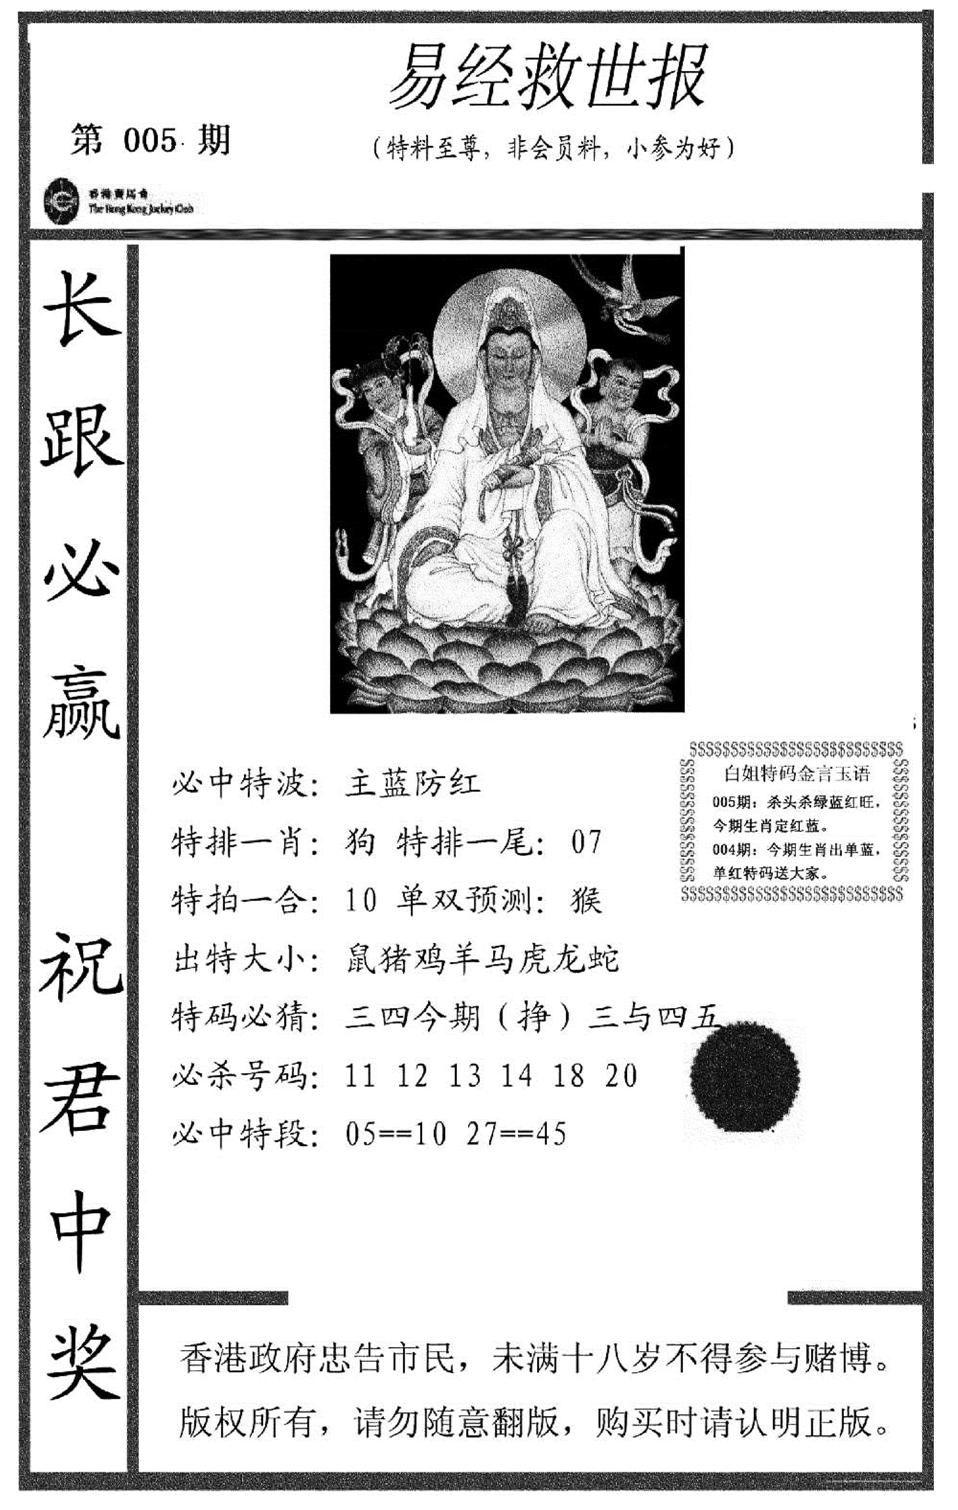 易经救世报
第 005 期
（特料至尊，非会员料，小参为好）
香港賽馬會
The Hong Kong Jockey Club
长跟必赢 祝君中奖
必中特波：主蓝防红
特排一肖：狗 特排一尾：07
特拍一合：10 单双预测：猴
出特大小：鼠猪鸡羊马虎龙蛇
特码必猜：三四今期（挣）三与四五
必杀号码：11 12 13 14 18 20
必中特段：05==10 27==45
$$$$$$$$$$$$$$$$$$$$$$$$$$$
白姐特码金言玉语
005期：杀头杀绿蓝红旺，
今期生肖定红蓝。
004期：今期生肖出单蓝，
单红特码送大家。
$$$$$$$$$$$$$$$$$$$$$$$$$$$
香港政府忠告市民，未满十八岁不得参与赌博。
版权所有，请勿随意翻版，购买时请认明正版。